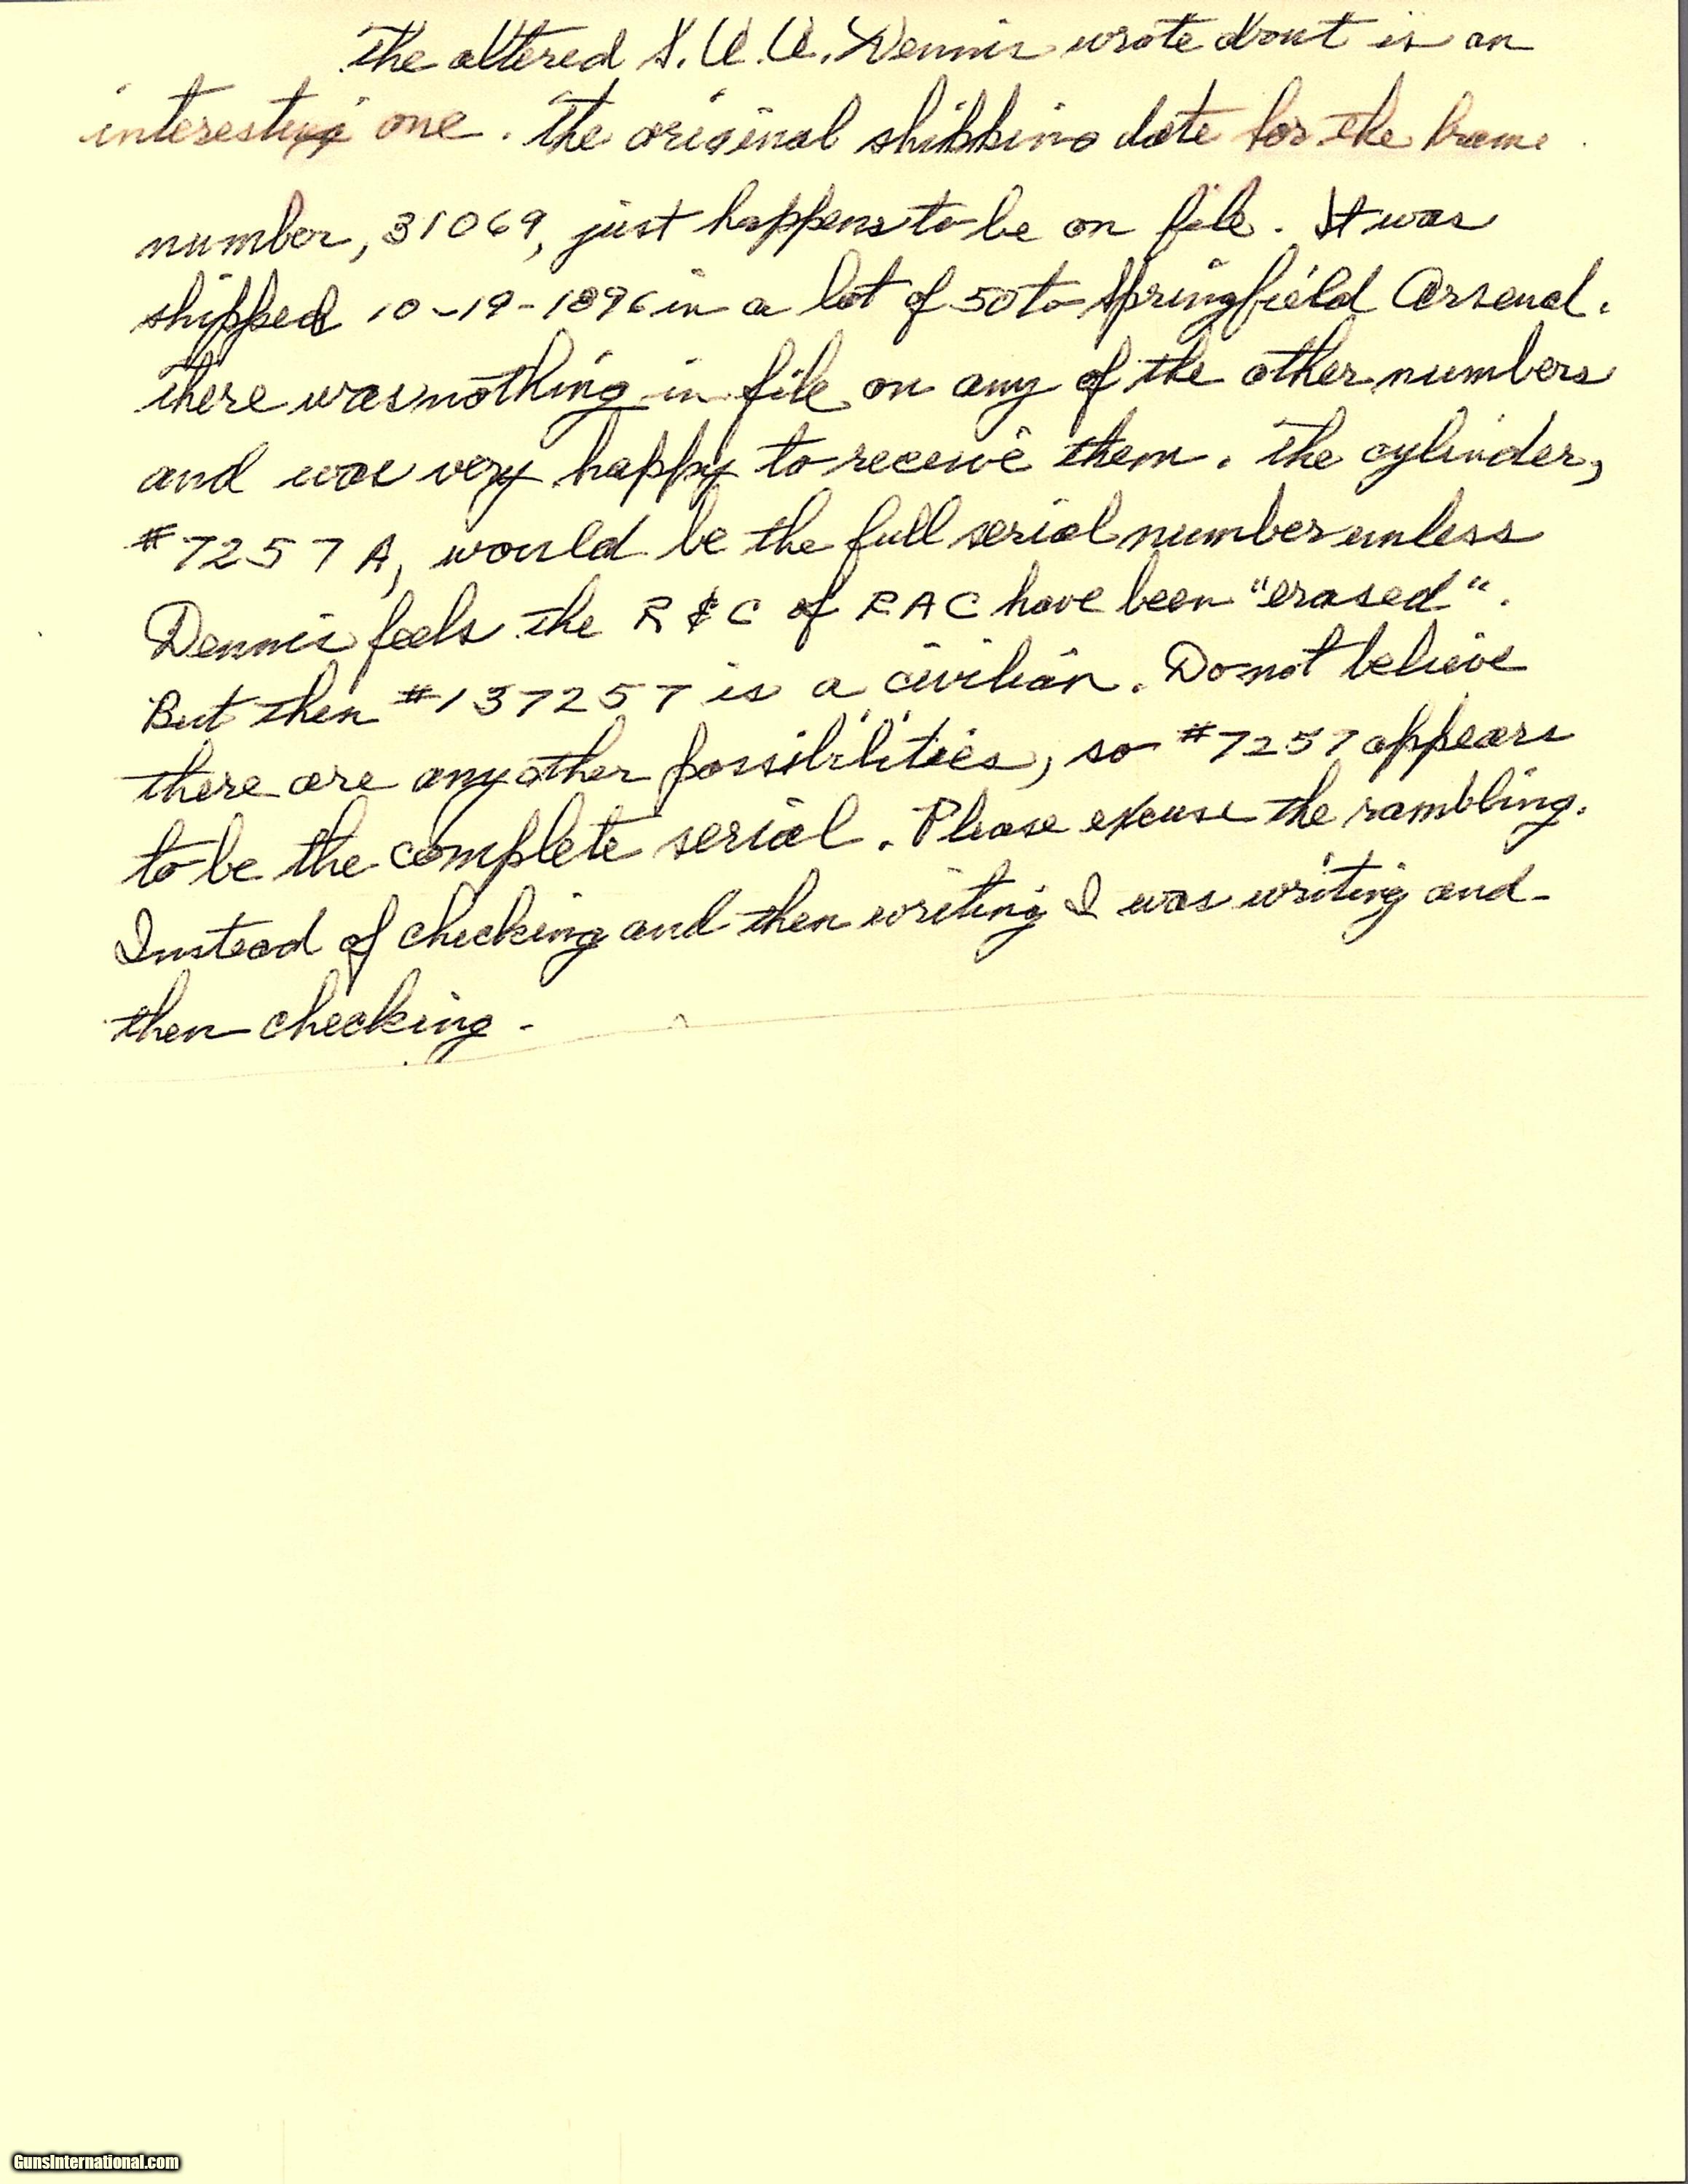 The altered S.A.A. Dennis wrote about is an
interesting one. The original shipping date for the frame
number, 31069, just happens to be on file. It was
shipped 10-19-1896 in a lot of 50 to Springfield Arsenal.
There was nothing in file on any of the other numbers
and was very happy to receive them. The cylinder,
#7257 A, would be the full serial number unless
Dennis feels the R & C of RAC have been "erased".
But then #137257 is a civilian. Do not believe
there are any other possibilities, so #7257 appears
to be the complete serial. Please excuse the rambling.
Instead of checking and then writing I was writing and
then checking.
GunsInternational.com